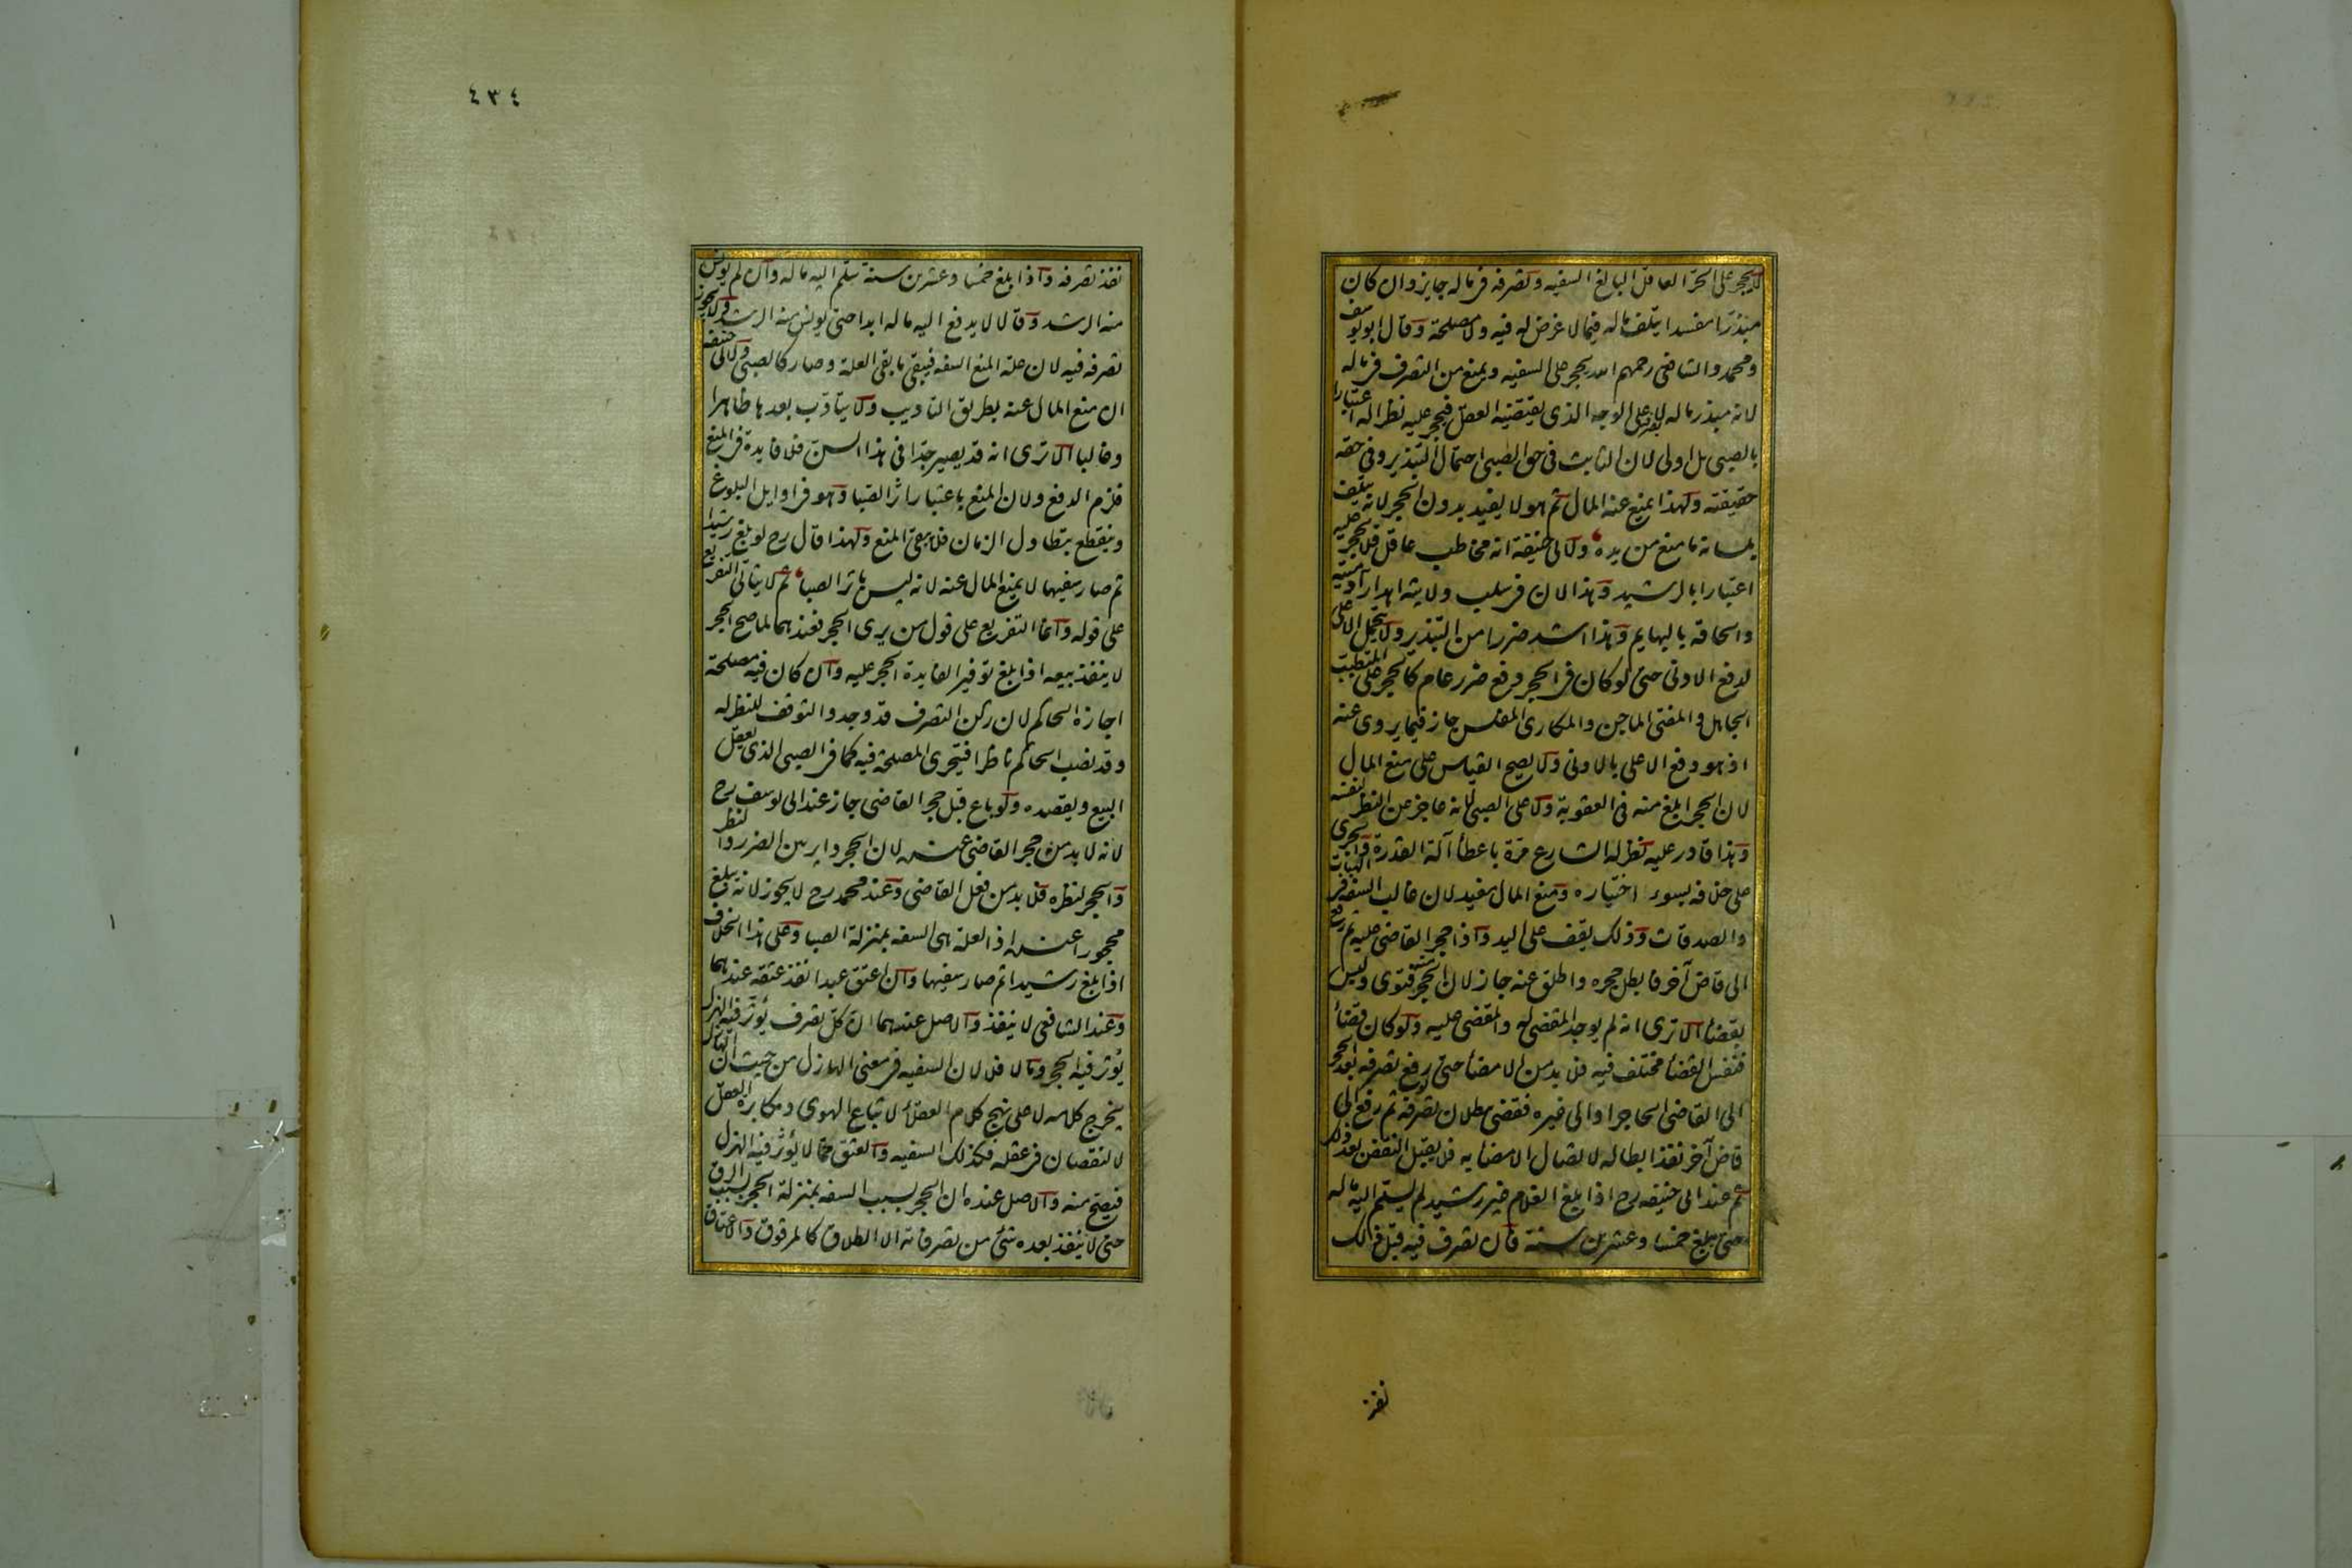 لا يحجر على الحر العاقل البالغ السفيه وتصرفه فى ماله جايز وان كان
مبذرا مفسدا يتلف ماله فيما لا غرض له فيه ولا مصلحة وقال ابو يوسف
ومحمد والشافعى رحمهم الله يحجر على السفيه ويمنع من التصرف فى ماله
لانه مبذر ماله لا على الوجه الذى يقتضيه العقل فيحجر عليه نظرا له اعتبارا
بالصبى بل اولى لان الثابت فى حق الصبى احتمال التبذير وفى حقه
حقيقته ولهذا يمنع عنه المال ثم هو لا يفيد بدون الحجر لانه يتلف
بلسانه ما منع من يده ولابى حنيفة انه مخاطب عاقل فلا يحجر عليه
اعتبارا بالرشيد وهذا لان فى سلب ولايته اهدار آدميته
والحاقه بالبهايم وهذا اشد ضررا من التبذير ولا يتحمل الاعلى
لدفع الادنى حتى لو كان فى الحجر دفع ضرر عام كالحجر على المتطبب
الجاهل والمفتى الماجن والمكارى المفلس جاز فيما يروى عنه
اذ هو دفع الاعلى بالادنى ولا يصح القياس على منع المال
لان الحجر ابلغ منه فى العقوبة ولا على الصبى لانه عاجز عن النظر لنفسه
وهذا قادر عليه نظر له الشارع مرة باعطاء آلة القدرة والجرى
على خلافه لسوء اختياره ومنع المال مفيد لان غالب السفه فى الهبات
والصدقات وذلك يقف على اليد واذا حجر القاضى عليه ثم رفع
الى قاض آخر فابطل حجره واطلق عنه جاز لان الحجر منه فتوى وليس
بقضاء الا ترى انه لم يوجد المقضى له والمقضى عليه ولو كان قضاء
فنفس القضاء مختلف فيه فلا بد من الامضاء حتى لو رفع تصرفه بعد الحجر
الى القاضى الحاجر او الى غيره فقضى ببطلان تصرفه ثم رفع الى
قاض آخر نفذ ابطاله لاتصال الامضا به فلا يقبل النقض بعد ذلك
ثم عند ابى حنيفه رح اذا بلغ الغلام غير رشيد لم يسلم اليه ماله
حتى يبلغ خمسا وعشرين سنة فان تصرف فيه قبل ذلك
نفذ
٤٣٤
نفذ تصرفه واذا بلغ خمسا وعشرين سنة سلم اليه ماله وان لم يونس
منه الرشد وقالا لا يدفع اليه ماله ابدا حتى يونس منه الرشد ولا يجوز
تصرفه فيه لان علة المنع السفه فيبقى ما بقى العلة وصار كالصبى ولابى حنيفه
ان منع المال عنه بطريق التاديب ولا يتادب بعد ها ظاهرا
وغالبا الا ترى انه قد يصير جدا فى هذا السن فلا فايدة فى المنع
فلزم الدفع ولان المنع باعتبار اثر الصبا وهو فى اوايل البلوغ
وينقطع بتطاول الزمان فلا يبقى المنع ولهذا قال رح لو بلغ رشيدا
ثم صار سفيها لا يمنع المال عنه لانه ليس باثر الصبا ثم لا يتاتى التفريع
على قوله وانما التفريع على قول من يرى الحجر فعندهما لما صح الحجر
لا ينفذ بيعه اذا بلغ توفيرا لفايدة الحجر عليه وان كان فيه مصلحة
اجازه الحاكم لان ركن التصرف قد وجد والتوقف للنظر له
وقد نصب الحاكم ناظرا فيتحرى المصلحة فيه كما فى الصبى الذى يعقل
البيع ويقصده ولو باع قبل حجر القاضى جاز عند ابى يوسف رح
لانه لا بد من حجر القاضى عنده لان الحجر داير بين الضرر والنظر
والحجر لنظره فلا بد من فعل القاضى وعند محمد رح لا يجوز لانه يبلغ
محجورا عنده اذ العلة هى السفه بمنزلة الصبا وعلى هذا الخلاف
اذا بلغ رشيدا ثم صار سفيها وان اعتق عبدا نفذ عتقه عندهما
وعند الشافعى لا ينفذ والاصل عندهما ان كل تصرف يؤثر فيه الهزل
يؤثر فيه الحجر وما لا فلا لان السفيه فى معنى الهازل من حيث ان الهازل
يخرج كلامه لا على نهج كلام العقلاء لاتباع الهوى ومكابرة العقل
لا لنقصان فى عقله فكذلك السفيه والعتق مما لا يؤثر فيه الهزل
فيصح منه والاصل عنده ان الحجر بسبب السفه بمنزلة الحجر بسبب الرق
حتى لا ينفذ بعده شئ من تصرفاته الا الطلاق كالمرقوق والاعتاق